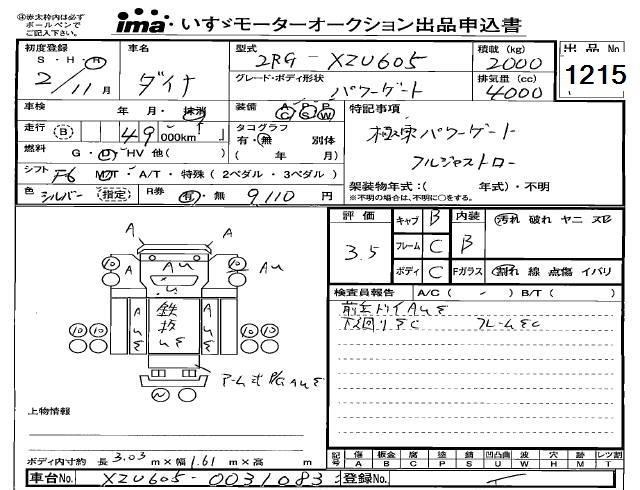 ④赤太枠内は必ず
ボールペンで
ご記入下さい。
ima いすゞモーターオークション出品申込書
初度登録 車名 型式 積載 (kg) 出品No
S・H・R 2RG-XZU605 2000 1215
2/11月 ダイナ グレード・ボディ形状 排気量 (cc)
パワーゲート 4000
車検 年・月・抹消 装備 A P P C S W 特記事項
走行 B 49 000km タコグラフ 有・無 別体 極東パワーゲート
燃料 G・D・HV 他( ) ( 年 月) フルジャストロー
シフト F6 M/T・A/T・特殊(2ペダル・3ペダル) 架装物年式:( 年式)・不明
色 シルバー 指定 R券 有・無 9110円 ※不明の場合は、不明に○をする。
評価 キャブ B 内装 汚れ 破れ ヤニ スレ
3.5 フレーム C B
ボディ C Fガラス 割れ 線 点傷 イバリ
検査員報告 A/C ( - ) B/T ( )
下回りさC フレームさC
A A
10 10 A AM A 10 AM
鉄板
10 10 10 10
アーム式P/G
上物情報
ボディ内寸約 長 3.03 m×幅 1.61 m×高 m
記号 傷 板金 腐 塗 錆 凹凸曲 波 穴 時 レツ割
A B C P S U W H M T
車台No. XZU605-0031083 登録No.